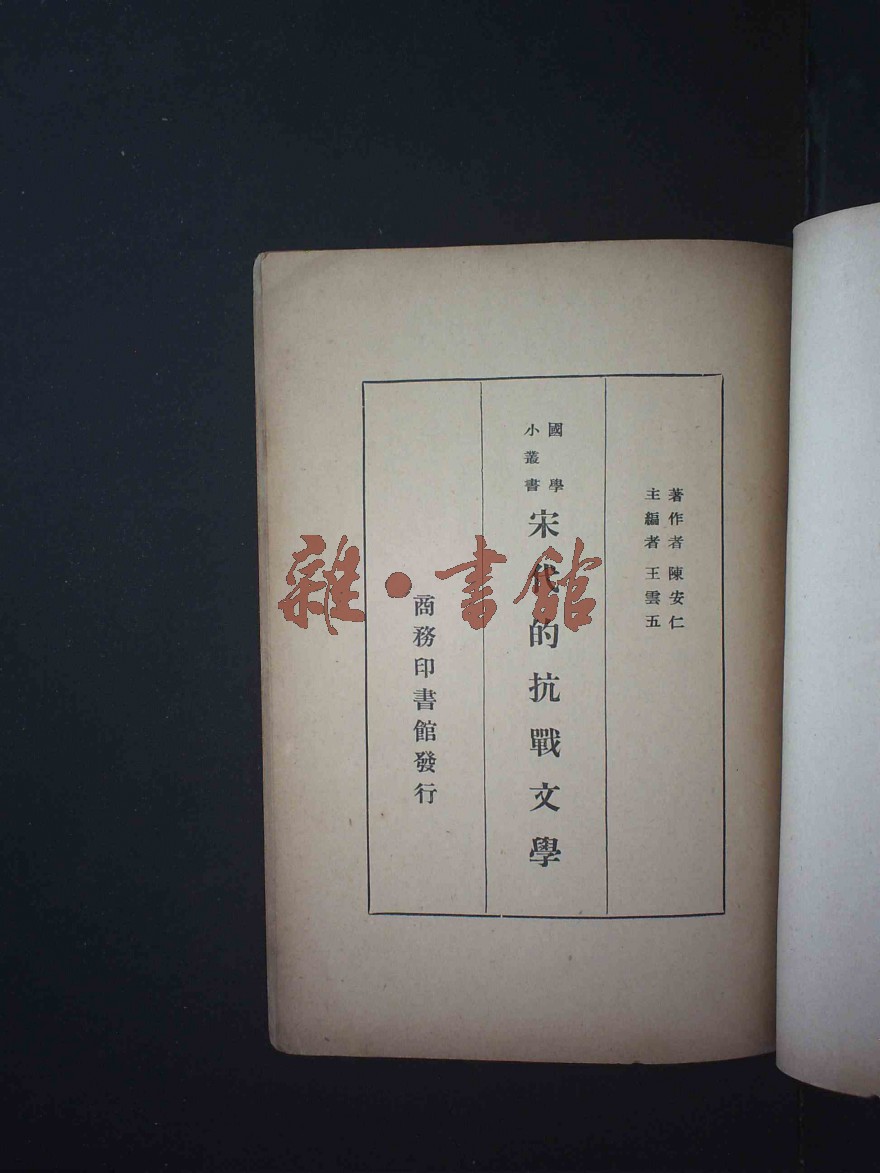 著作者 陳安仁
主編者 王雲五
國學
小叢書
宋代的抗戰文學
商務印書館發行
雜·書館